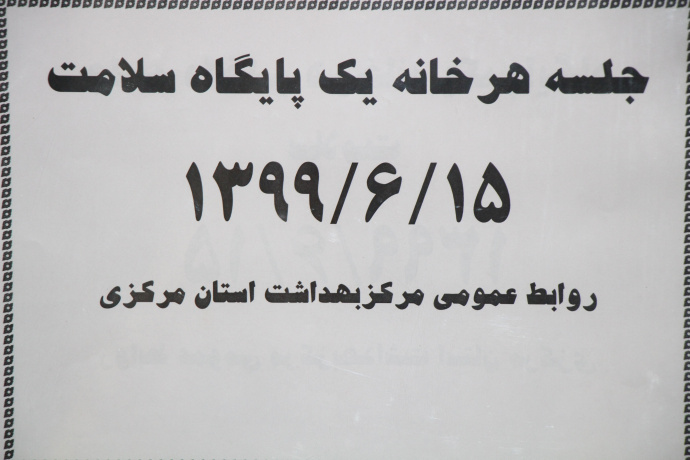 جلسه هرخانه یک پایگاه سلامت
۱۳۹۹/۶/۱۵
روابط عمومی مرکزبهداشت استان مرکزی